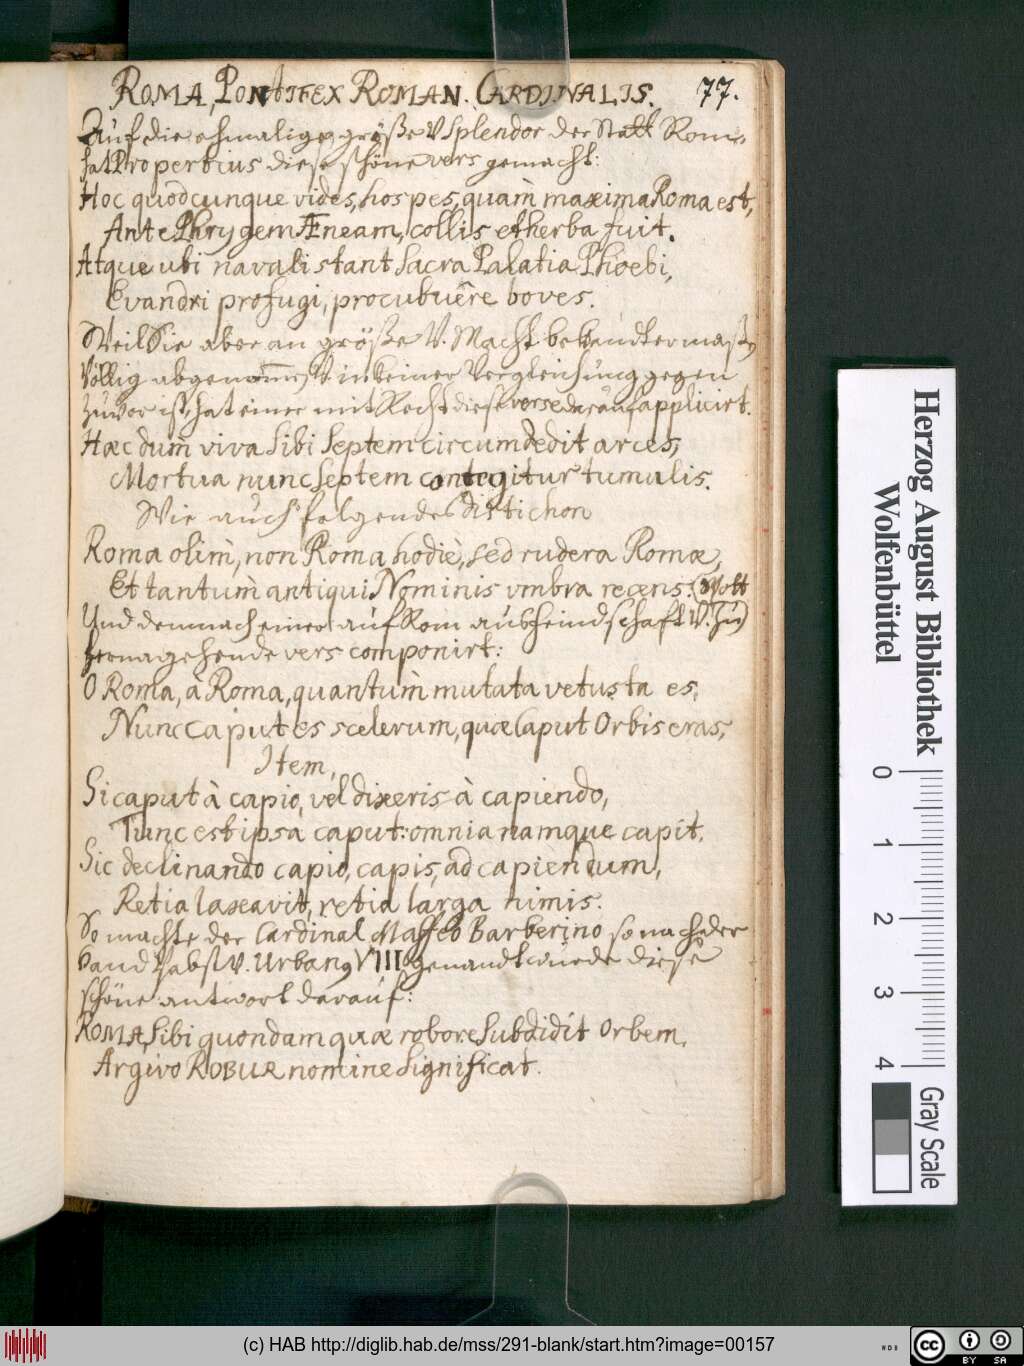 ROMA, PONTIFEX ROMAN. CARDINALIS. 77.
Auf die ehmalige größe V Splendor der Statt Rom,
hat Propertius diese schöne vers gemacht:
Hoc quodcunque vides, hospes, quam̀ maxima Roma est,
Ante Phrygem Æneam, collis et herba fuit.
Atque ubi navali stant sacra Palatia Phoebi,
Evandri profugi, procubuêre boves.
Weil Sie aber an größe V. Macht bekandter maßen
Völlig abgenommen V in keiner Vergleichung gegen
zuvor ist, hat einer mit Recht diese verse darauf applicirt.
Hæc dum̀ viva sibi septem circumdedit arces,
Mortua nunc septem contegitur tumulis.
Wie auch folgendes distichon
Roma olim̀, non Roma hodiè, sed rudera Romæ,
Et tantum̀ antiqui Nominis vmbra recens.
Und demnach einer auf Rom aus feindschafft V.
hernagehende vers componirt:
O Roma, à Roma, quantum̀ mutata vetusta es,
Nunc caput es scelerum, quæ Caput Orbis eras,
Item,
Si caput à capio, vel dixeris à capiendo,
Tunc est ipsa caput: omnia namque capit.
Sic declinando capio, capis, ad capiendum,
Retia laxavit, retia larga nimis.
So machte der Cardinal Maffeo Barberino so nachder
hand Pabst V. Urbanus VIII genandt wurde diese
schöne antwort darauf:
ROMA, sibi quondam quæ robore subdidit Orbem,
Argivo ROBUR nomine significat.
Herzog August Bibliothek
Wolfenbüttel
0 1 2 3 4
Gray Scale
(c) HAB http://diglib.hab.de/mss/291-blank/start.htm?image=00157
WDB
cc BY SA